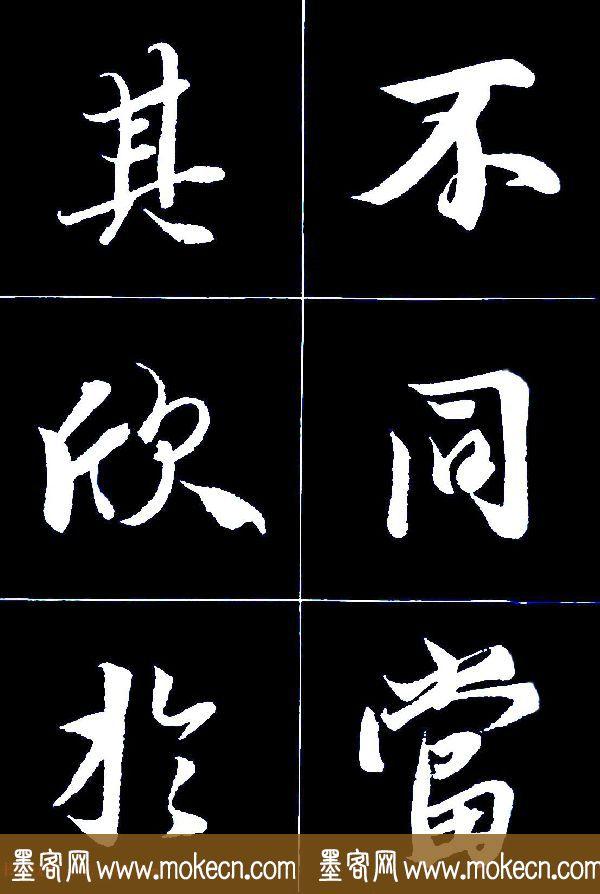 不同當
其欣於
墨客网 www.mokecn.com 墨客网 www.mokecn.com